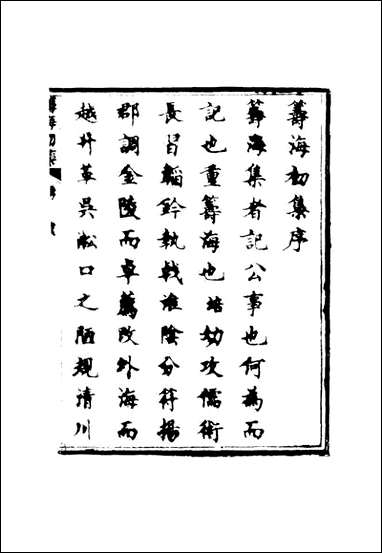 籌海初集序
籌海集者記公事也何為而
記也重籌海也培幼攻儒術
長習韜鈐執戟淮陰分符揚
郡調金陵而卓薦改外海而
越升草吳淞口之陋規清川
籌海初集 序